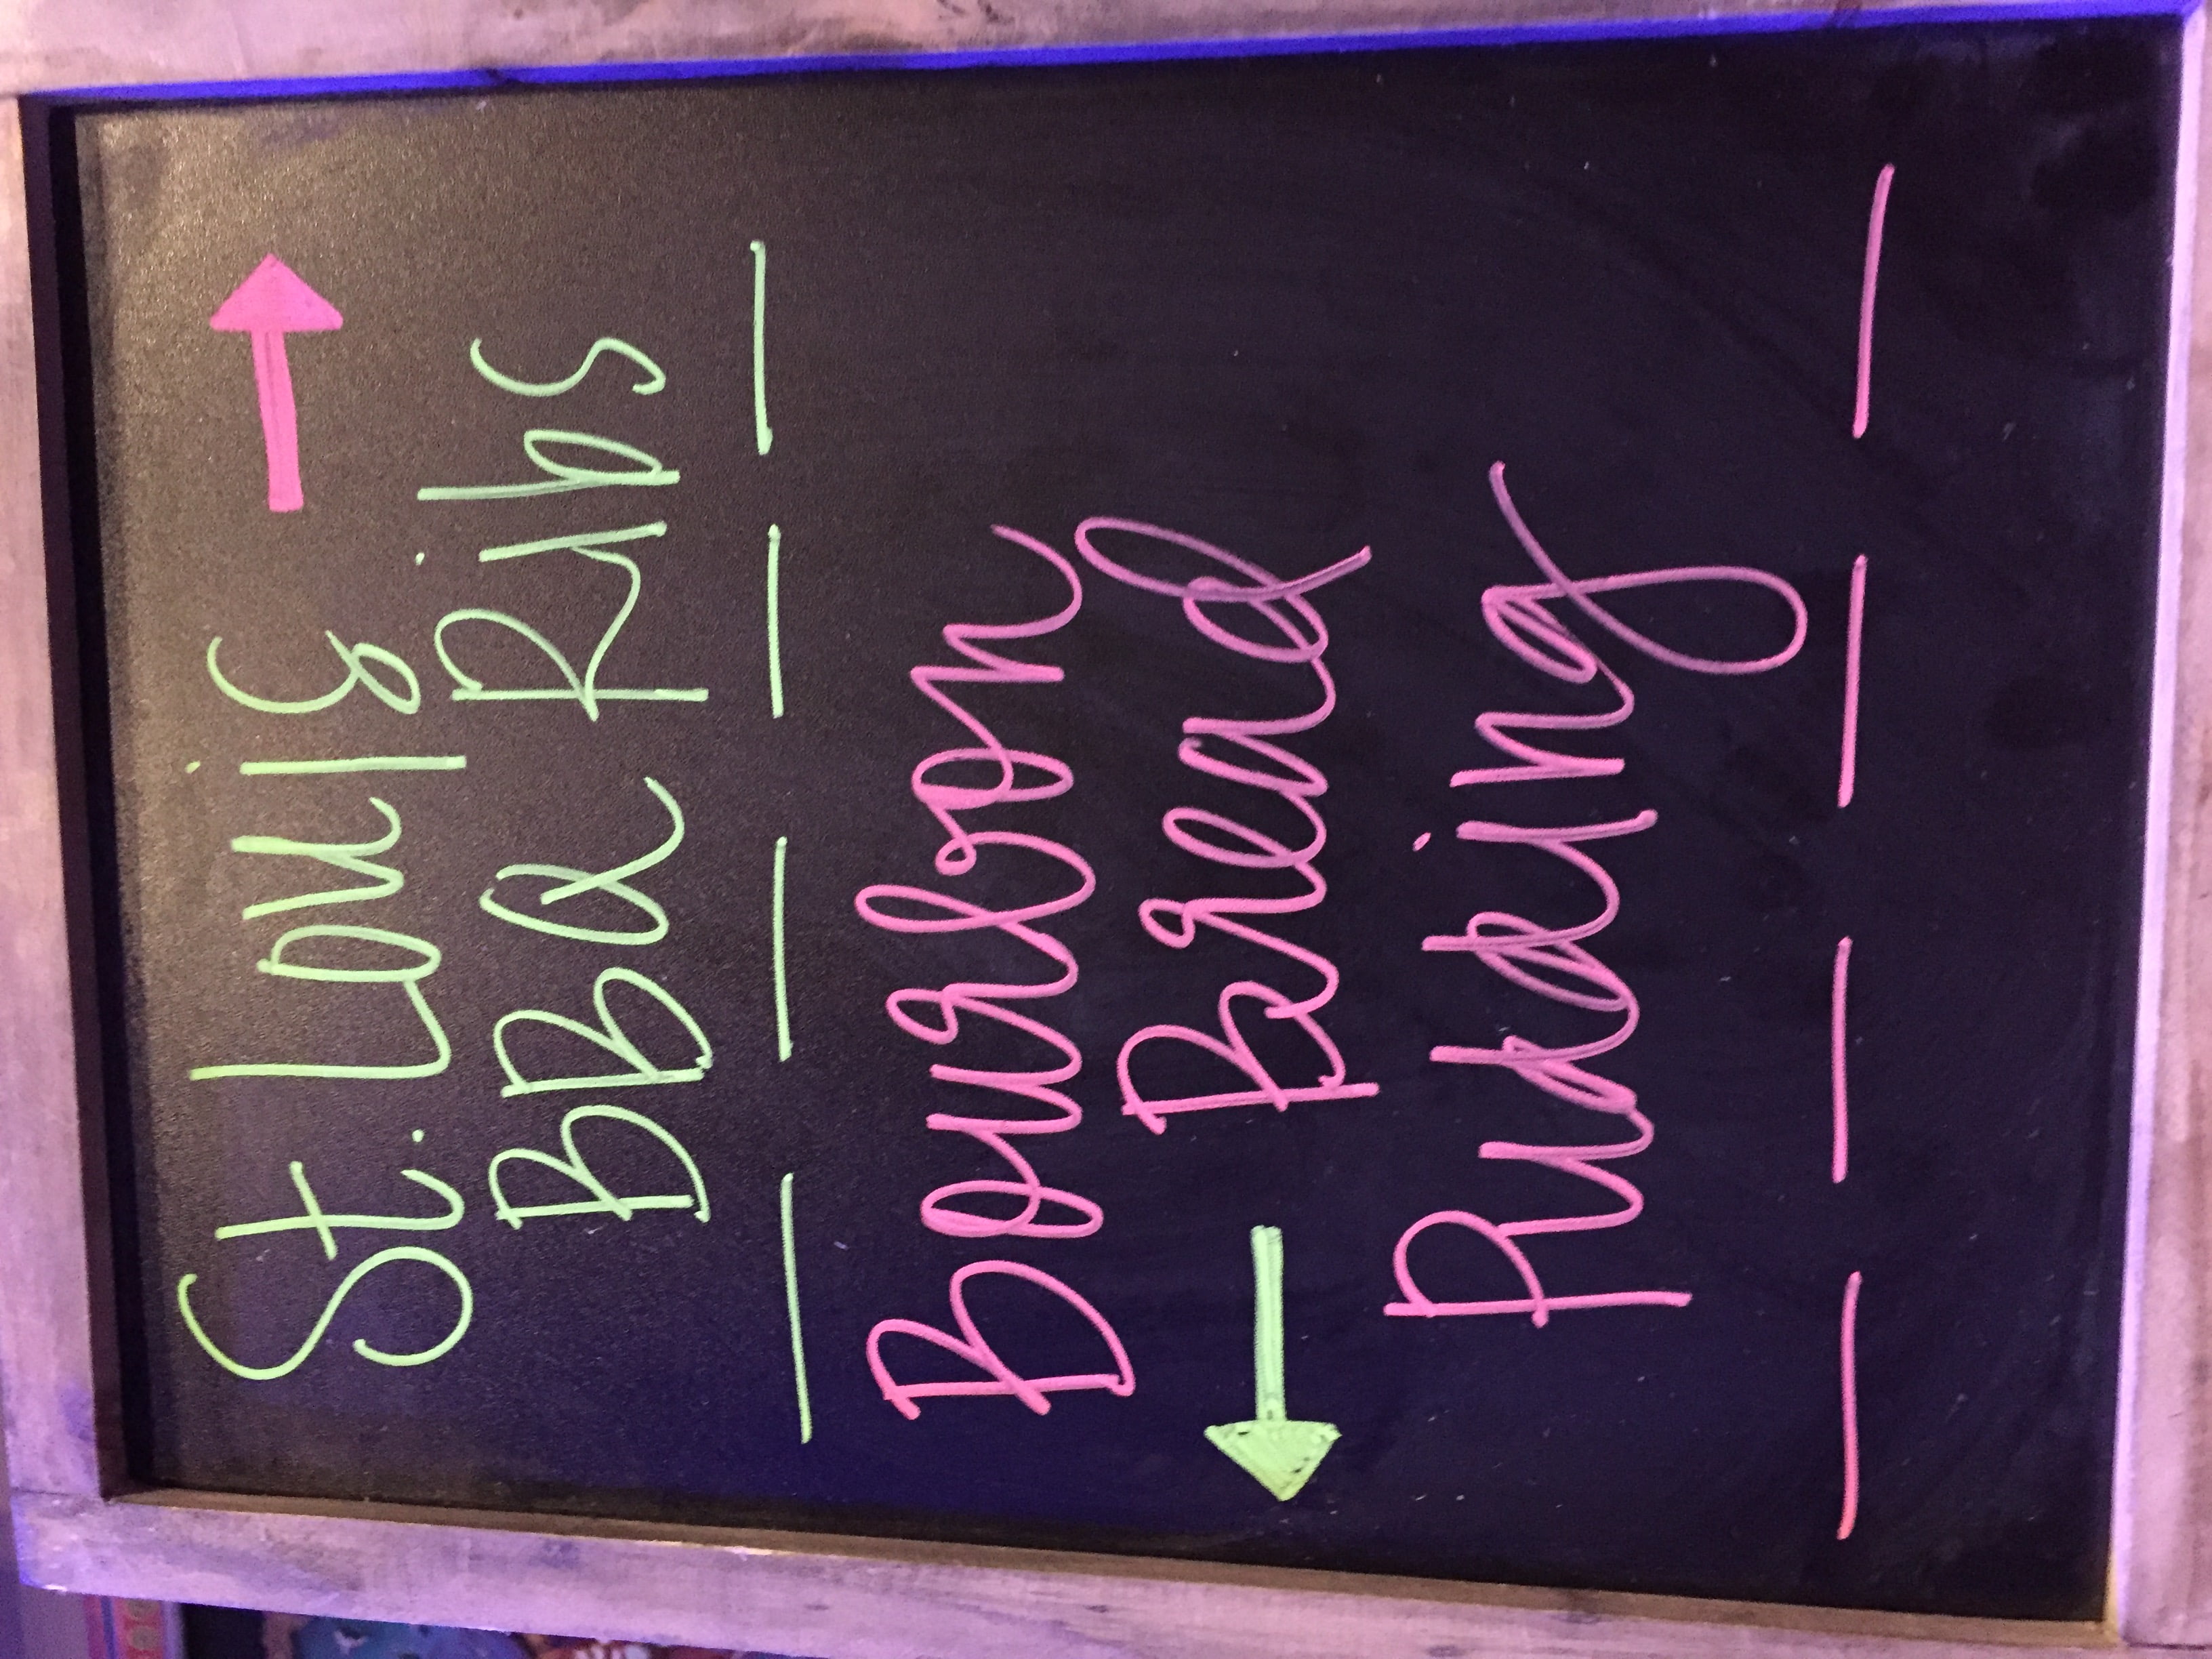 St. Louis
BBQ Ribs
Bourbon
Bread
Pudding